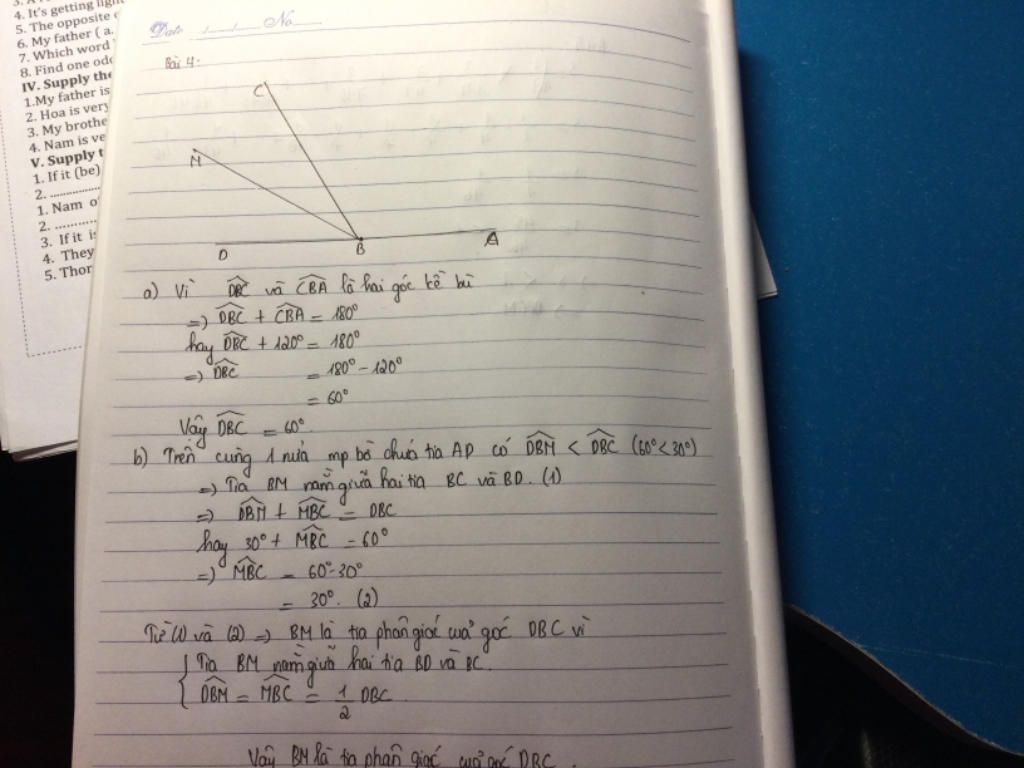 4. It's getting light
5. The opposite
6. My father ( a.
7. Which word
8. Find one odd
IV. Supply the
1.My father is
2. Hoa is very
3. My brothe
4. Nam is ve
V. Supply t
1. If it (be)
2. ..........
1. Nam o
2. ..........
3. If it is
4. They
5. Thor
Date ...../...../..... No ........
Bài 4:
C
M
D B A
a) Vì D̂BC và ĈBA là hai góc kề bù
=> D̂BC + ĈBA = 180°
hay D̂BC + 120° = 180°
=> D̂BC = 180° - 120°
= 60°
Vậy D̂BC = 60°.
b) Trên cùng 1 nửa mp bờ chứa tia AD có D̂BM < D̂BC (60° < 30°)
=> Tia BM nằm giữa hai tia BC và BD. (1)
=> D̂BM + M̂BC = DBC
hay 30° + M̂BC = 60°
=> M̂BC = 60° - 30°
= 30°. (2)
Từ (1) và (2) => BM là tia phân giác của góc DBC vì
{ Tia BM nằm giữa hai tia BD và BC.
D̂BM = M̂BC = 1/2 DBC
Vậy BM là tia phân giác của góc DBC.